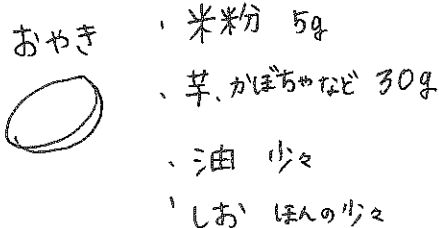 おやき
・米粉 5g
・芋、かぼちゃなど 30g
・油 少々
・しお ほんの少々